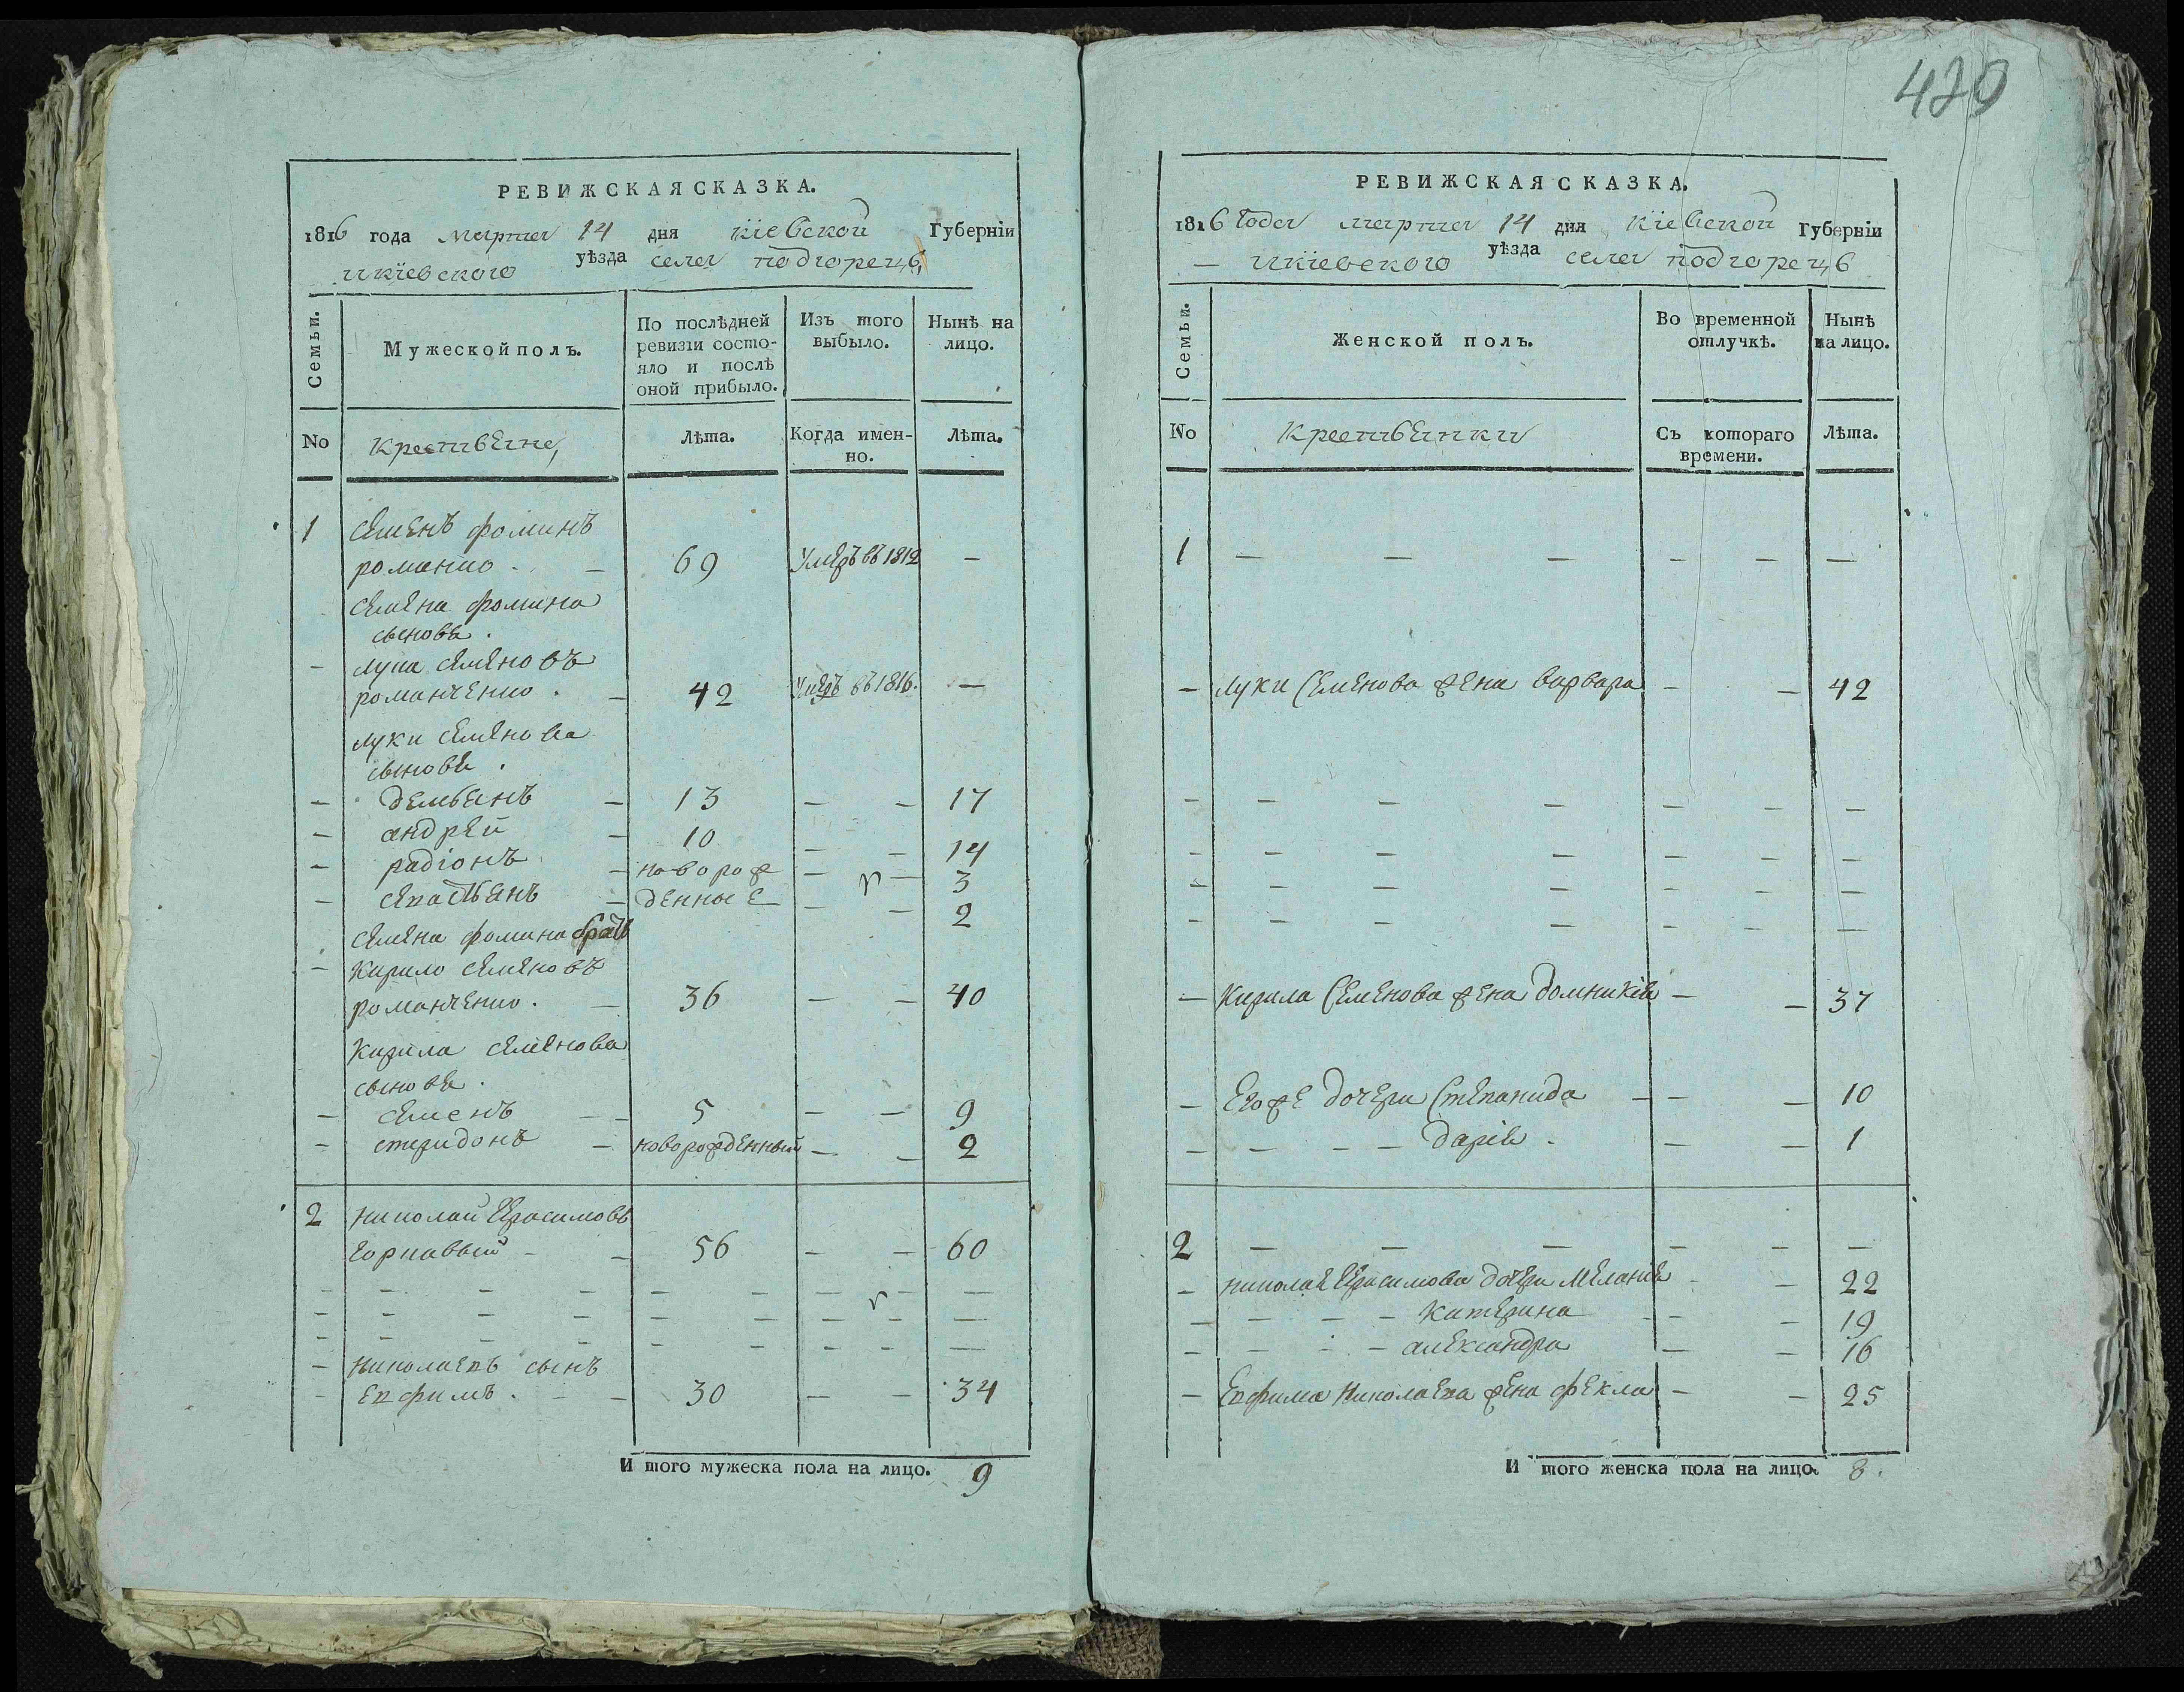 РЕВИЖСКАЯ СКАЗКА.
1816 года марта 14 дня Кіевской Губерніи
и Кіевского уѣзда села Подгорецъ
Семьи.
Мужеской полъ.
По послѣдней ревизіи состояло и послѣ оной прибыло.
Изъ того выбыло.
Нынѣ на лицо.
No
Крестьяне,
Лѣта.
Когда именно.
Лѣта.
1 Семенъ Фоминъ
Романко - - 69 Умеръ въ 1812 -
Семена Фомина
сыновья.
- Лука Семеновъ
Романченко. - 42 Умеръ въ 1816. -
Луки Семенова
сыновья.
- Демьянъ - 13 - - 17
- Андрей - 10 - - 14
- Радіонъ - новорож - - 3
- Севастьянъ - денные - - 2
Семена Фомина братъ
- Кирило Семеновъ
Романченко. - 36 - - 40
Кирила Семенова
сыновья.
- Семенъ - - 5 - - 9
- Спиридонъ - новорожденный - - 2
2 Николай Герасимовъ
Горкавый - - 56 - - 60
- Николаевъ сынъ
- Евфимъ. - - 30 - - 34
И того мужеска пола на лицо. 9
420
РЕВИЖСКАЯ СКАЗКА.
1816 года марта 14 дня Кіевской Губерніи
- и Кіевского уѣзда села Подгорецъ
Семьи.
Женской полъ.
Во временной отлучкѣ.
Нынѣ на лицо.
No
Крестьянки
Съ котораго времени.
Лѣта.
1 - - - - - -
- Луки Семенова жена Варвара - - 42
- Кирила Семенова жена Домникія - - 37
- Его же дочери Степанида - - - 10
- - - - Дарія. - - 1
2 - - - - - -
- Николая Герасимова дочери Меланія - - 22
- - - - Катерина - - - 19
- - - - Александра - - 16
- Евфима Николаева жена Фекла - - 25
И того женска пола на лицо. 8.